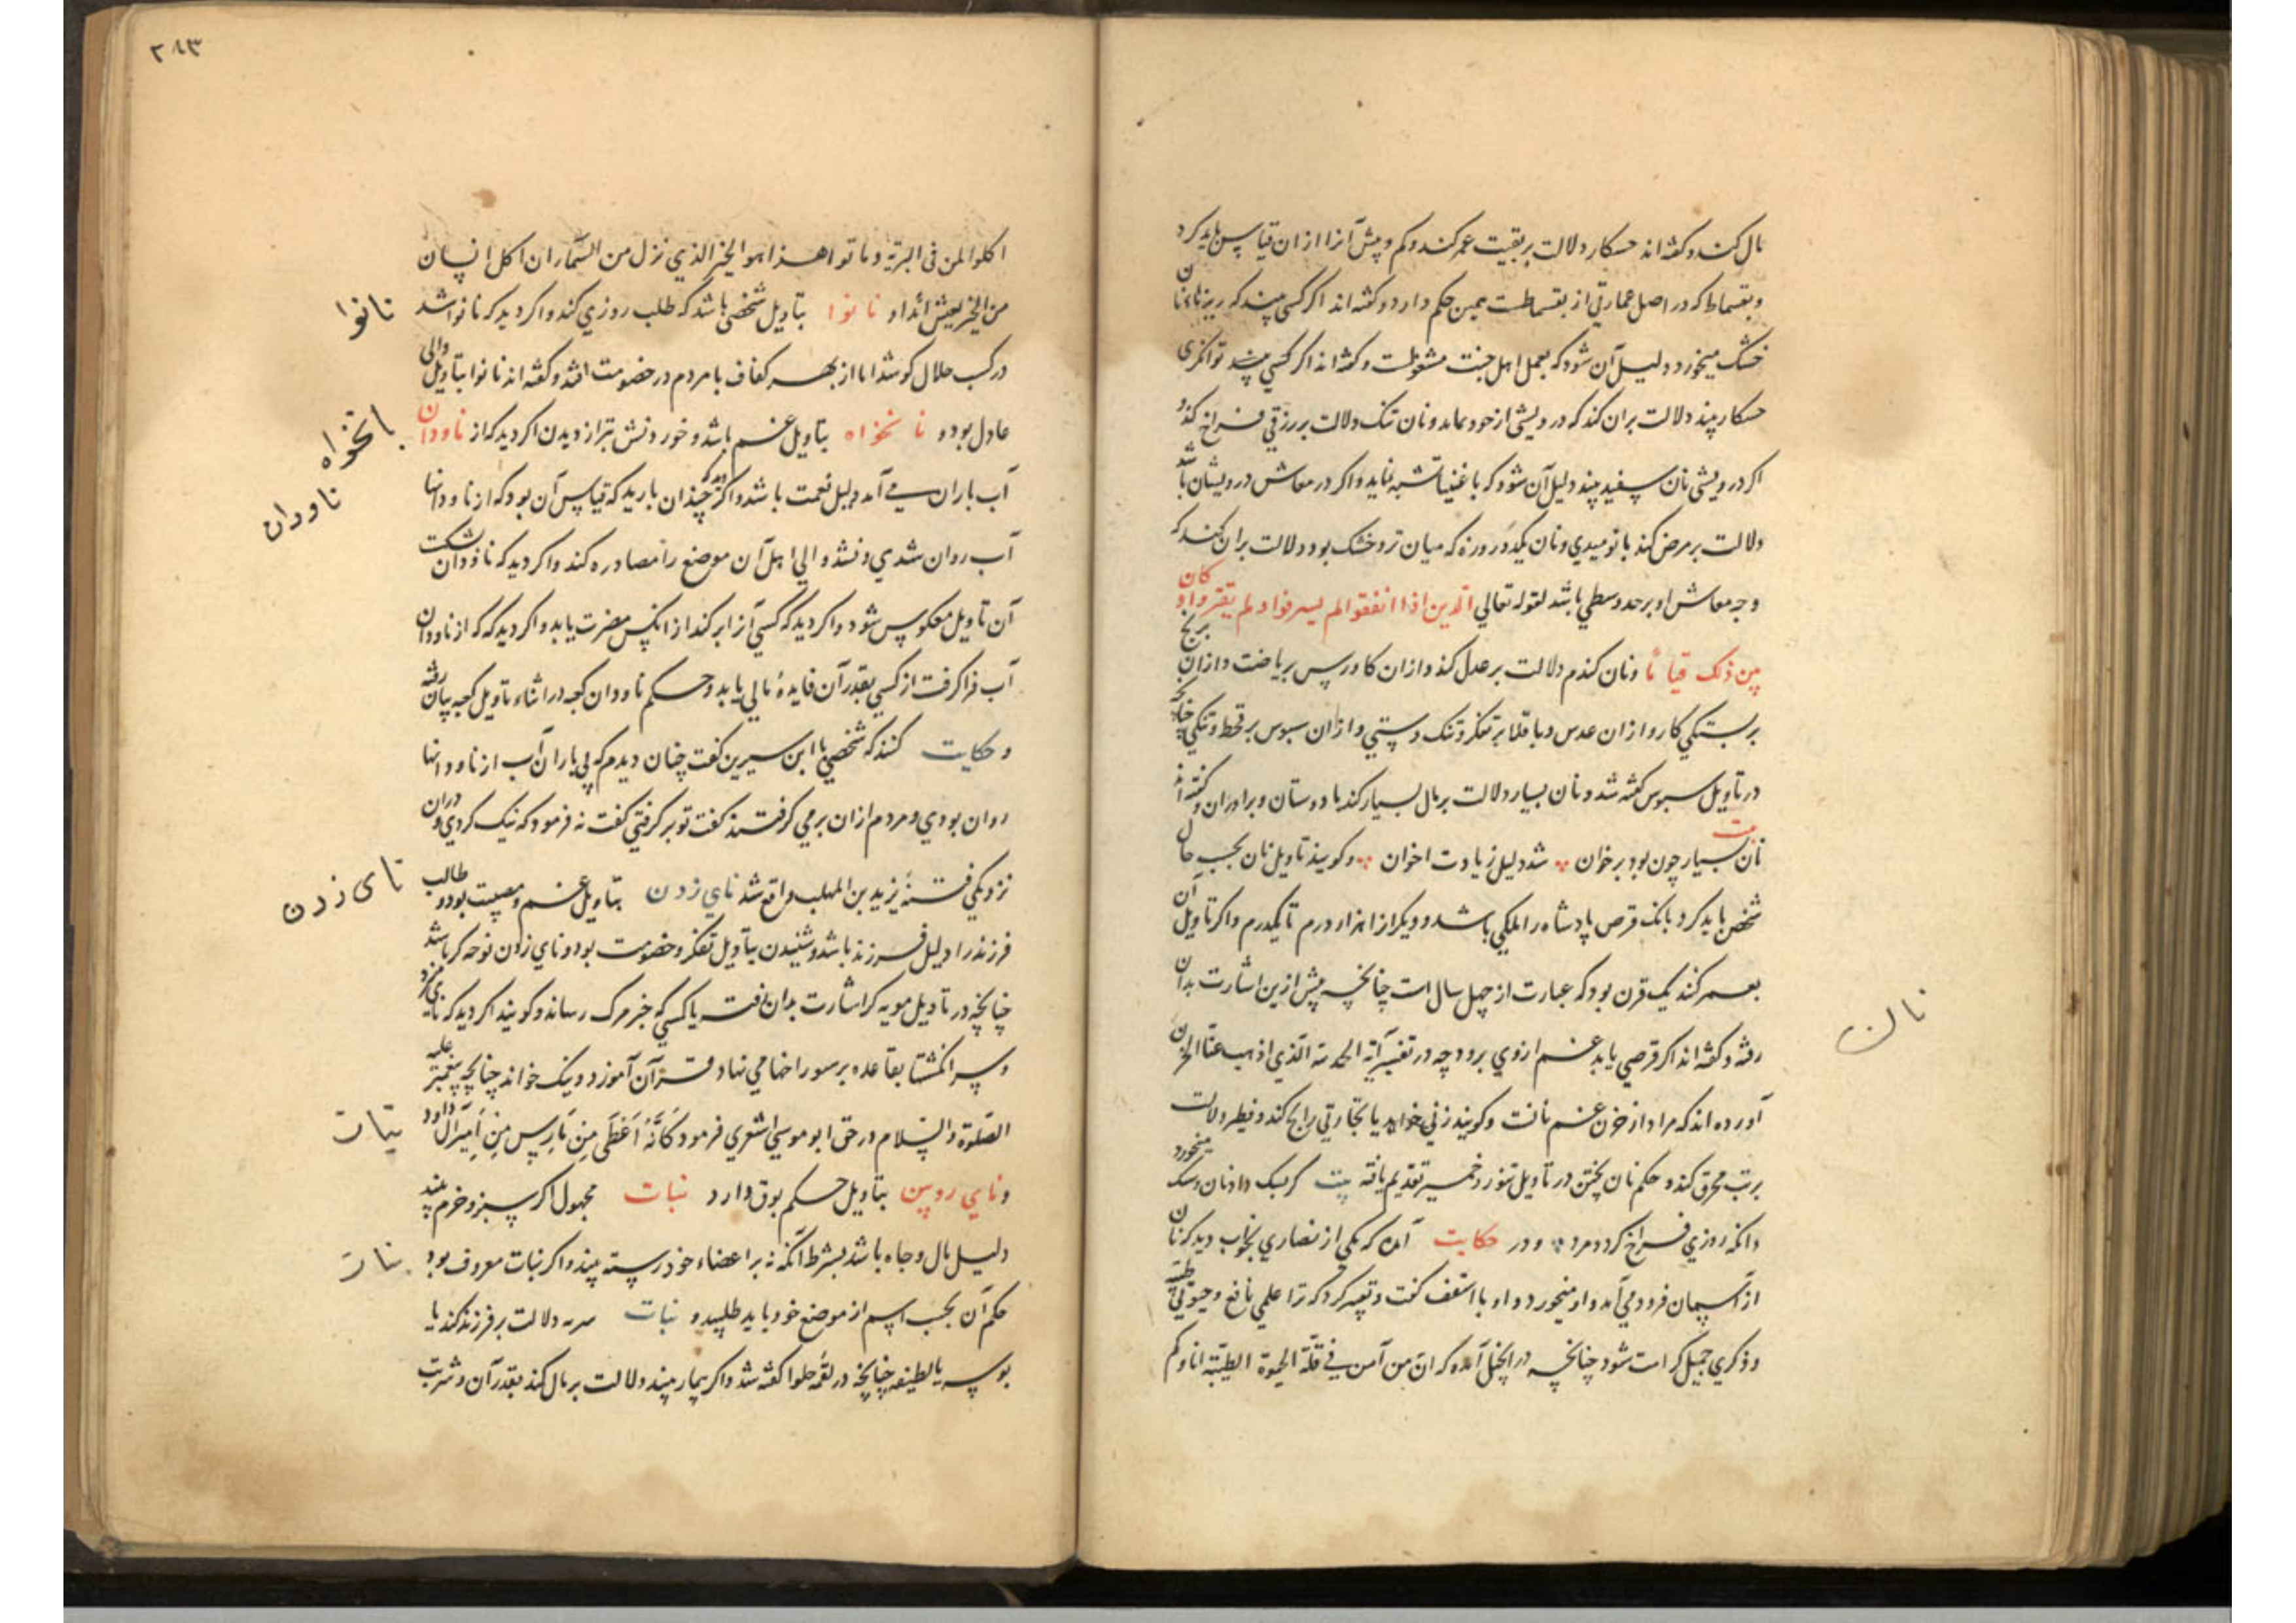 مال کند و کفته اند خسکار دلالت بر بقیت عمر کند و کم و بیش آنرا از ان قیاس باید کرد
و بقسماط که در اصل عمارتی از بقسماطست همین حکم دارد و کفته اند اکر کسی بیند که ریزهاء نان
خشک میخورد دلیل آن شود که بعمل اهل جنت مشغولست و کفته اند اکر کسی بیند توانکری
خسکار بیند دلالت بران کند که درویشی از خود نماید و نان تنک دلالت بر رزقی فراخ کند و
اکر درویشی نان سفید بیند دلیل آن شود که باغنیا تشبه نماید و اکر در معاش درویشان باشد
دلالت بر مرض کند یا نومیدی و نان یکدو روزه که میان تر و خشک بود دلالت بران کند که
وجه معاش او بر حد وسطی باشد لقوله تعالی الذین اذا انفقوا لم یسرفوا و لم یقتروا و کان
بین ذلک قواما و نان کندم دلالت بر عدل کند و ازان کاورس بریاضت و ازان برنج
بر بستکی کار و ازان عدس و باقلا بر تفکر و تنک دستی و ازان سبوس بر قحط و تنکی چنانچه
در تأویل سبوس کفته شد و نان بسیار دلالت بر مال بسیار کند یا دوستان و برادران و کفته اند
بیت نان بسیار چون بود بر خوان شد دلیل زیادت اخوان و کویند تاویل نان بحسب حال
شخص باید کرد بانک قرص پادشاه را ملکی باشد و دیکرانرا هزار درم تا یکدرم و اکر تاویل آن
بعمر کند یک قرن بود که عبارت از چهل سال است چنانچه پیش ازین اشارت بدان
رفته و کفته اند اکر قرصی یابد غم ازوی برود چه در تفسیر آیه الحمد لله الذی اذهب عنا الحزن
آورده اند که مراد از حزن غم نانت و کویند زنی خواهد یا تجارتی رابح کند و فطیر دلالت
بر تب محرق کند و حکم نان پختن در تاویل تنور و خمیر تقدیم یافته بیت کر بسک داد نان و سک میخورد
دانکه روزی فراخ کرد و مرد و در حکایت آمده که یکی از نصاری بخواب دید که نان
از آسمان فرود می آمد و او میخورد و او با اسقف کفت و تعبیر کرد که ترا علمی نافع و حیوتی طیبه
و ذکری جمیل کرامت شود چنانچه در انجیل آمده که ان من آمن فی قلة الحیوة الطیبة انا وکم
نان
۲۸۳
اکلوا المن فی البریة و ماتوا هذا هو الخبز الذی نزل من السماء ان اکل انسان
من الخبز یعیش ابدا و نانوا بتاویل شخصی باشد که طلب روزی کند و اکر دید که نانوا شد
در کسب حلال کوشد اما از بهر کفاف با مردم در خصومت افتد و کفته اند نانوا بتاویل والی
عادل بود و نانخواه بتاویل غم باشد و خوردنش بتر از دیدن اکر دید که از ناودان
آب باران می آمد دلیل نعمت باشد و اکر دید که چندان بارید که قیاس آن بود که از ناودانها
آب روان شدی و نشد والی اهل آن موضع را مصادره کند و اکر دید که ناودان بشکست
آن تاویل معکوس شود و اکر دید که کسی آنرا بر کند از انکس مضرت یابد و اکر دید که که از ناودان
آب فرا کرفت از کسی بقدر آن فایدهٔ مالی یابد و حکم ناودان کعبه در اثناء تاویل کعبه بیان رفته
و حکایت کنند که شخصی با ابن سیرین کفت چنان دیدم که بی باران آب از ناودانها
روان بودی و مردم ازان بر می کرفتند کفت تو بر کرفتی کفت نه فرمود که نیک کردی و دران
نزدیکی فتنهٔ یزید بن المهلب واقع شد نای زدن بتاویل غم و مصیبت بود و طالب
فرزند را دلیل فرزند باشد و شنیدن بتاویل تفکر و خصومت بود و نای زدن نوحه کر باشد
چنانچه در تاویل مویه کر اشارت بدان رفت یا کسی که خبر مرک رساند و کویند اکر دید که نای میزد
و سر انکشتها بقاعده بر سوراخها می نهاد قرآن آموزد و نیک خواند چنانچه پیغمبر علیه
الصلوة والسلام در حق ابو موسی اشعری فرمود کأنه اعطی من مزامیر آل داود
و نای رویین بتاویل حکم بوق دارد نبات مجهول اکر سبز و خرم بیند
دلیل مال و جاه باشد بشرط آنکه نه بر اعضاء خود رسته بیند و اکر نبات معروف بود
حکم آن بحسب اسم از موضع خود باید طلبید و نبات دلالت بر فرزند کند یا
بوسه یا لطیفه چنانچه در لقمهٔ حلوا کفته شد و اکر بیمار بیند دلالت بر مال کند بقدر آن و شربت
نانوا
انخواه
ناودان
نای زدن
نبات
نبات